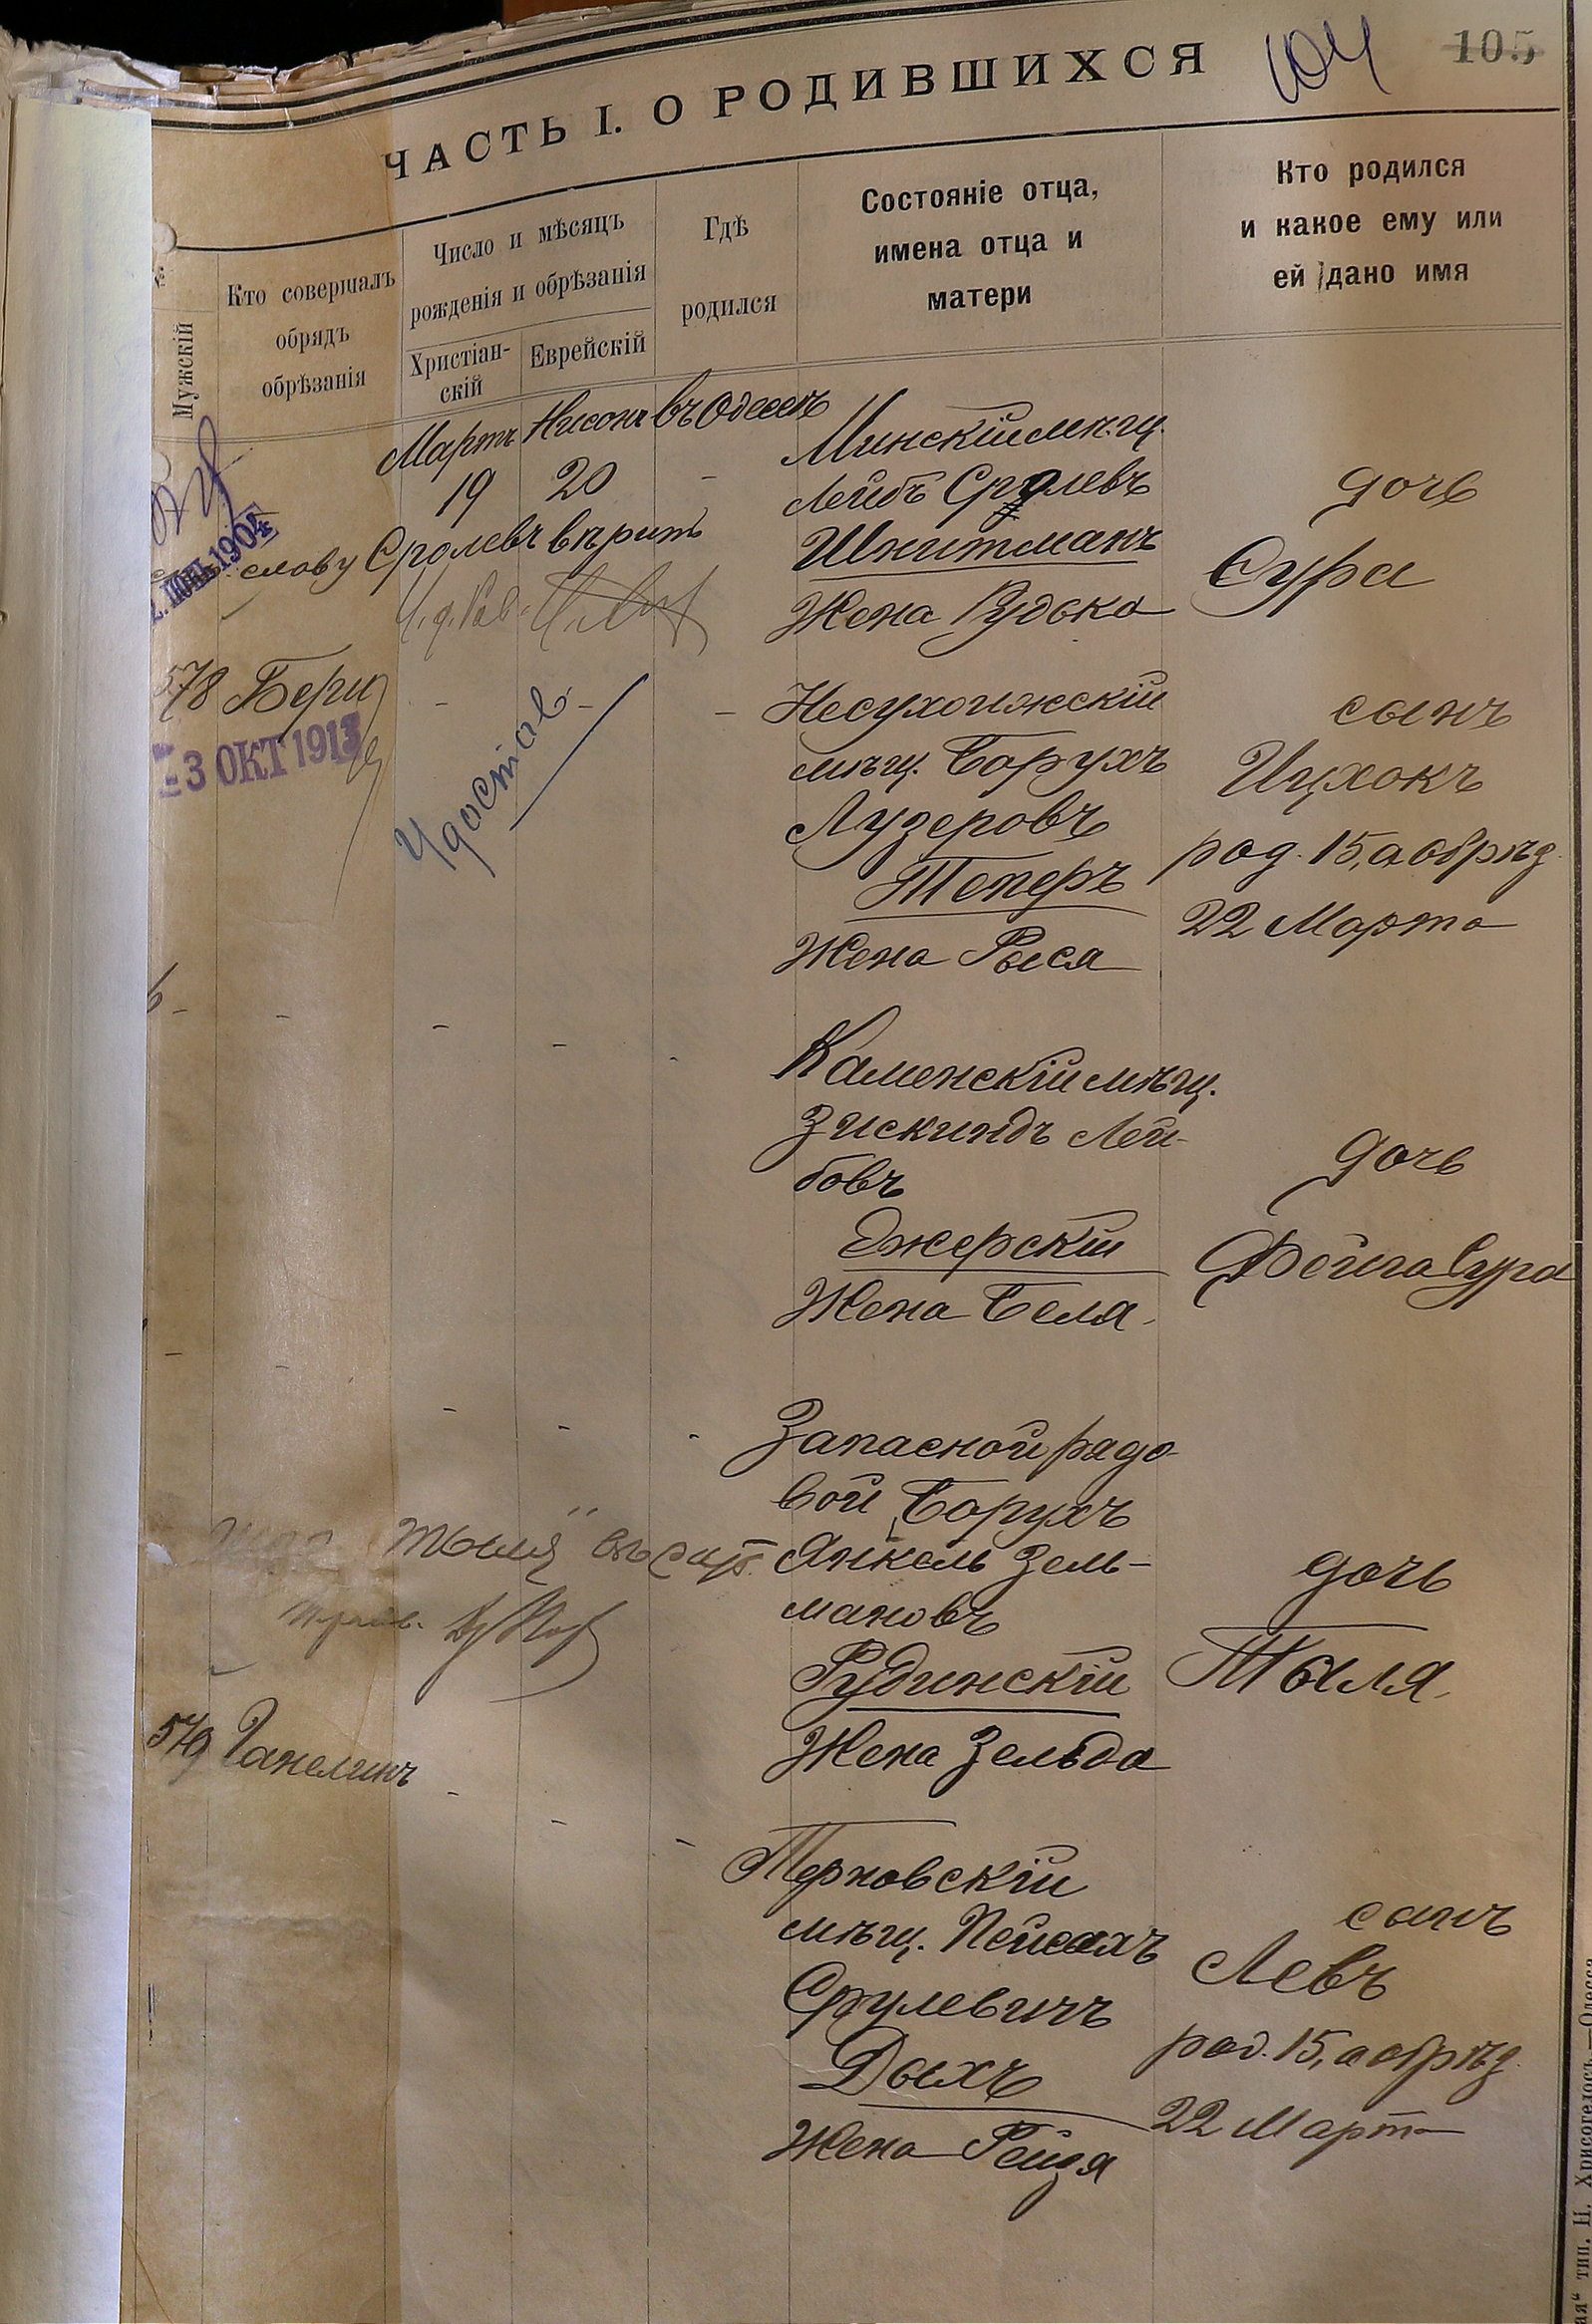 104
105
ЧАСТЬ I. О РОДИВШИХСЯ
№
Мужскій
Кто совершалъ
обрядъ
обрѣзанія
Число и мѣсяцъ
рожденія и обрѣзанія
Христіан-
скій
Еврейскій
Гдѣ
родился
Состояніе отца,
имена отца и
матери
Кто родился
и какое ему или
ей дано имя
Мартъ Нисонъ въ Одессѣ
19 20 -
Минскій мѣщ.
Лейбъ Сролевъ
Шнитманъ
Жена Рудька
дочь
Сура
1904
слову Сролевъ вѣрить
578 Бери - - -
3 ОКТ 1913
Удостов.
Несухоижскій
мѣщ. Борухъ
Лузеровъ
Теперъ
Жена Рыся
сынъ
Ицхокъ
род. 15, а обрѣз.
22 Марта
- - - - -
Каменскій мѣщ.
Зискиндъ Лей-
бовъ
Эжерскій
Жена Беля.
дочь
Фейга Сура
- - - - -
Запасной рядо-
вой Борухъ
Янкель Зель-
мановъ
Рудинскій
Жена Зельда
дочь
Тыля.
579 Ганелинъ - - -
Терновскій
мѣщ. Пейсахъ
Срулевичъ
Дыхъ
Жена Рейзя
сынъ
Левъ
род. 15, а обрѣз.
22 Марта
тип. Н. Хрисогелосъ.—Одесса